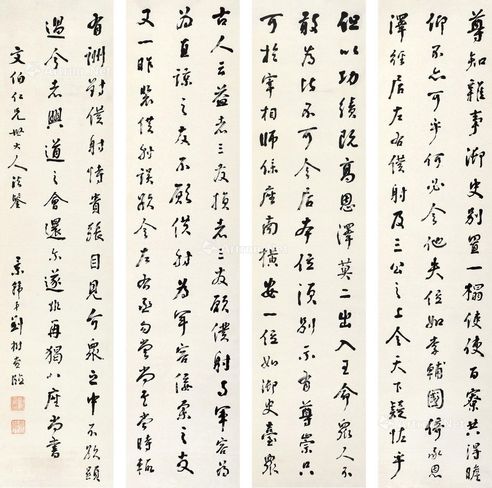 尊知雜事御史別置一榻使使百寮共得瞻
仰不亦可乎何必令他失位如李輔國倚承恩
澤徑居左右僕射及三公之上令天下疑怪乎
但以功績既高恩澤莫二出入王命眾人不
敢為比不可令居本位須別示有尊崇只
可於宰相師保座南橫安一位如御史臺眾
古人云益者三友損者三友願僕射与軍容為
為直諒之友不願僕射為軍容佞柔之友
又一昨裴僕射誤欲令左右丞勾當尚書當時輒
有詶對僕射恃貴張目見介眾之中不欲顯
過今者興道之會還尒遂非再猲八座尚書
文伯仁兄世大人法鑒
景韓弟劉樹臨